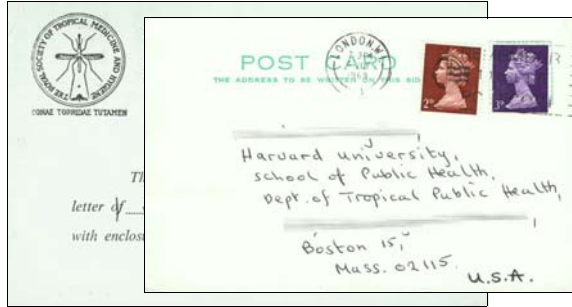 THE ROYAL SOCIETY OF TROPICAL MEDICINE AND HYGIENE
ZONAE TORRIDAE TUTAMEN
Th
letter of
with enclos
POST CARD
THE ADDRESS TO BE WRITTEN ON THIS SID
LONDON.W.1
2D
3D
Harvard university,
school of Public Health,
Dept. of Tropical Public Health,
Boston 15,
Mass. 02115.
U.S.A.